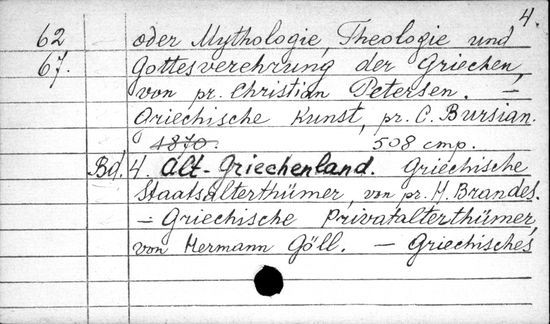 4.
62 oder Mythologie, Theologie und
67. Gottesverehrung der Griechen,
von pr. Christian Petersen. —
Griechische Kunst, pr. C. Bursian.
1870. 508 cmp.
Bd. 4. Alt-Griechenland. Griechische
Staatsalterthümer, von pr. H. Brandes.
— Griechische Privatalterthümer,
von Hermann Göll. — Griechisches